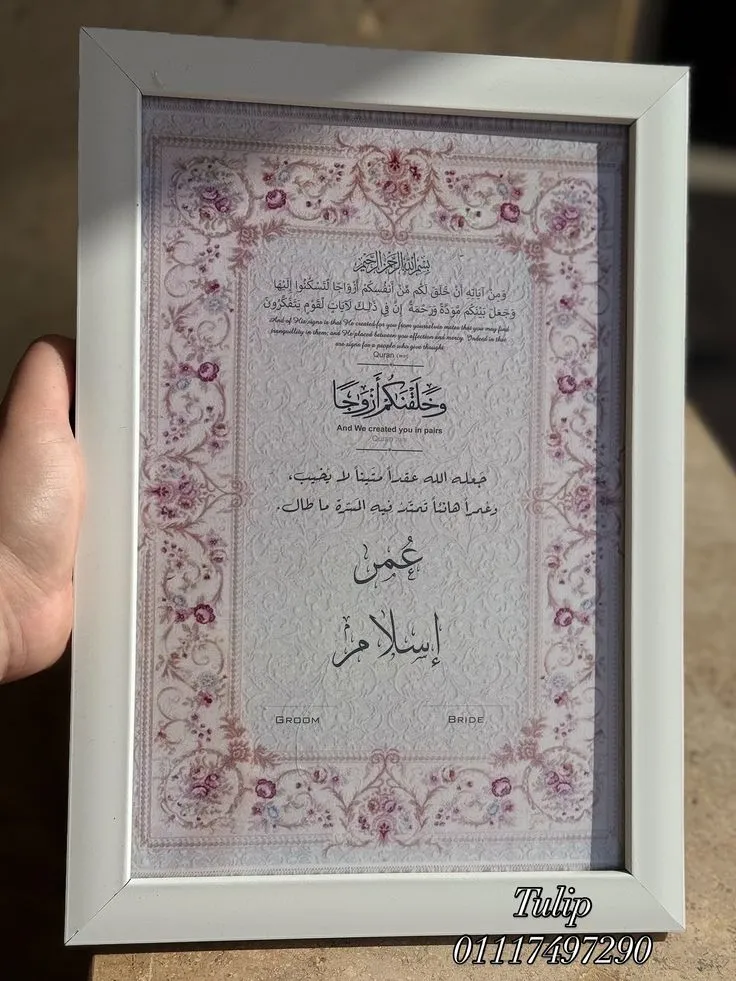 بسم الله الرحمن الرحيم
وَمِنْ آيَاتِهِ أَنْ خَلَقَ لَكُم مِّنْ أَنفُسِكُمْ أَزْوَاجًا لِّتَسْكُنُوا إِلَيْهَا
وَجَعَلَ بَيْنَكُم مَّوَدَّةً وَرَحْمَةً إِنَّ فِي ذَلِكَ لَآيَاتٍ لِّقَوْمٍ يَتَفَكَّرُونَ
And of His signs is that He created for you from yourselves mates that you may find
tranquillity in them; and He placed between you affection and mercy. Indeed in that
are signs for a people who give thought
Quran
وَخَلَقْنَٰكُمْ أَزْوَٰجًا
And We created you in pairs
Quran
جَعله الله عقداً مَتيناً لا يَخيب،
وعُمراً هانئاً تَمتَد فيه المَسَرة ما طال.
عُمر
إسلام
GROOM BRIDE
Tulip
01117497290